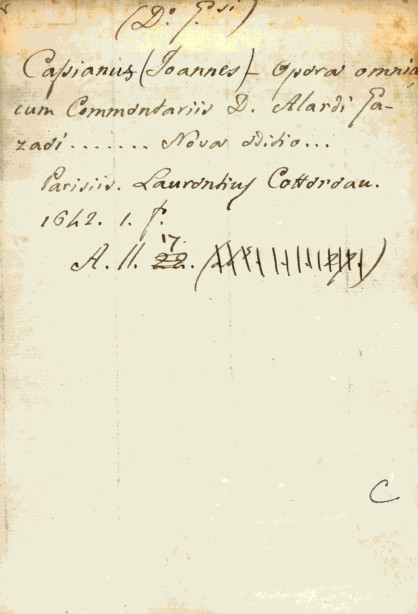 (D.º G.si)
Cassianus (Joannes) – Opera omnia,
cum Commentariis D. Alardi Ga-
zaei ....... Nova editio...
Parisiis. Laurentius Cottereau.
1642. 1. f.
17.
A. 11. 22. (
C